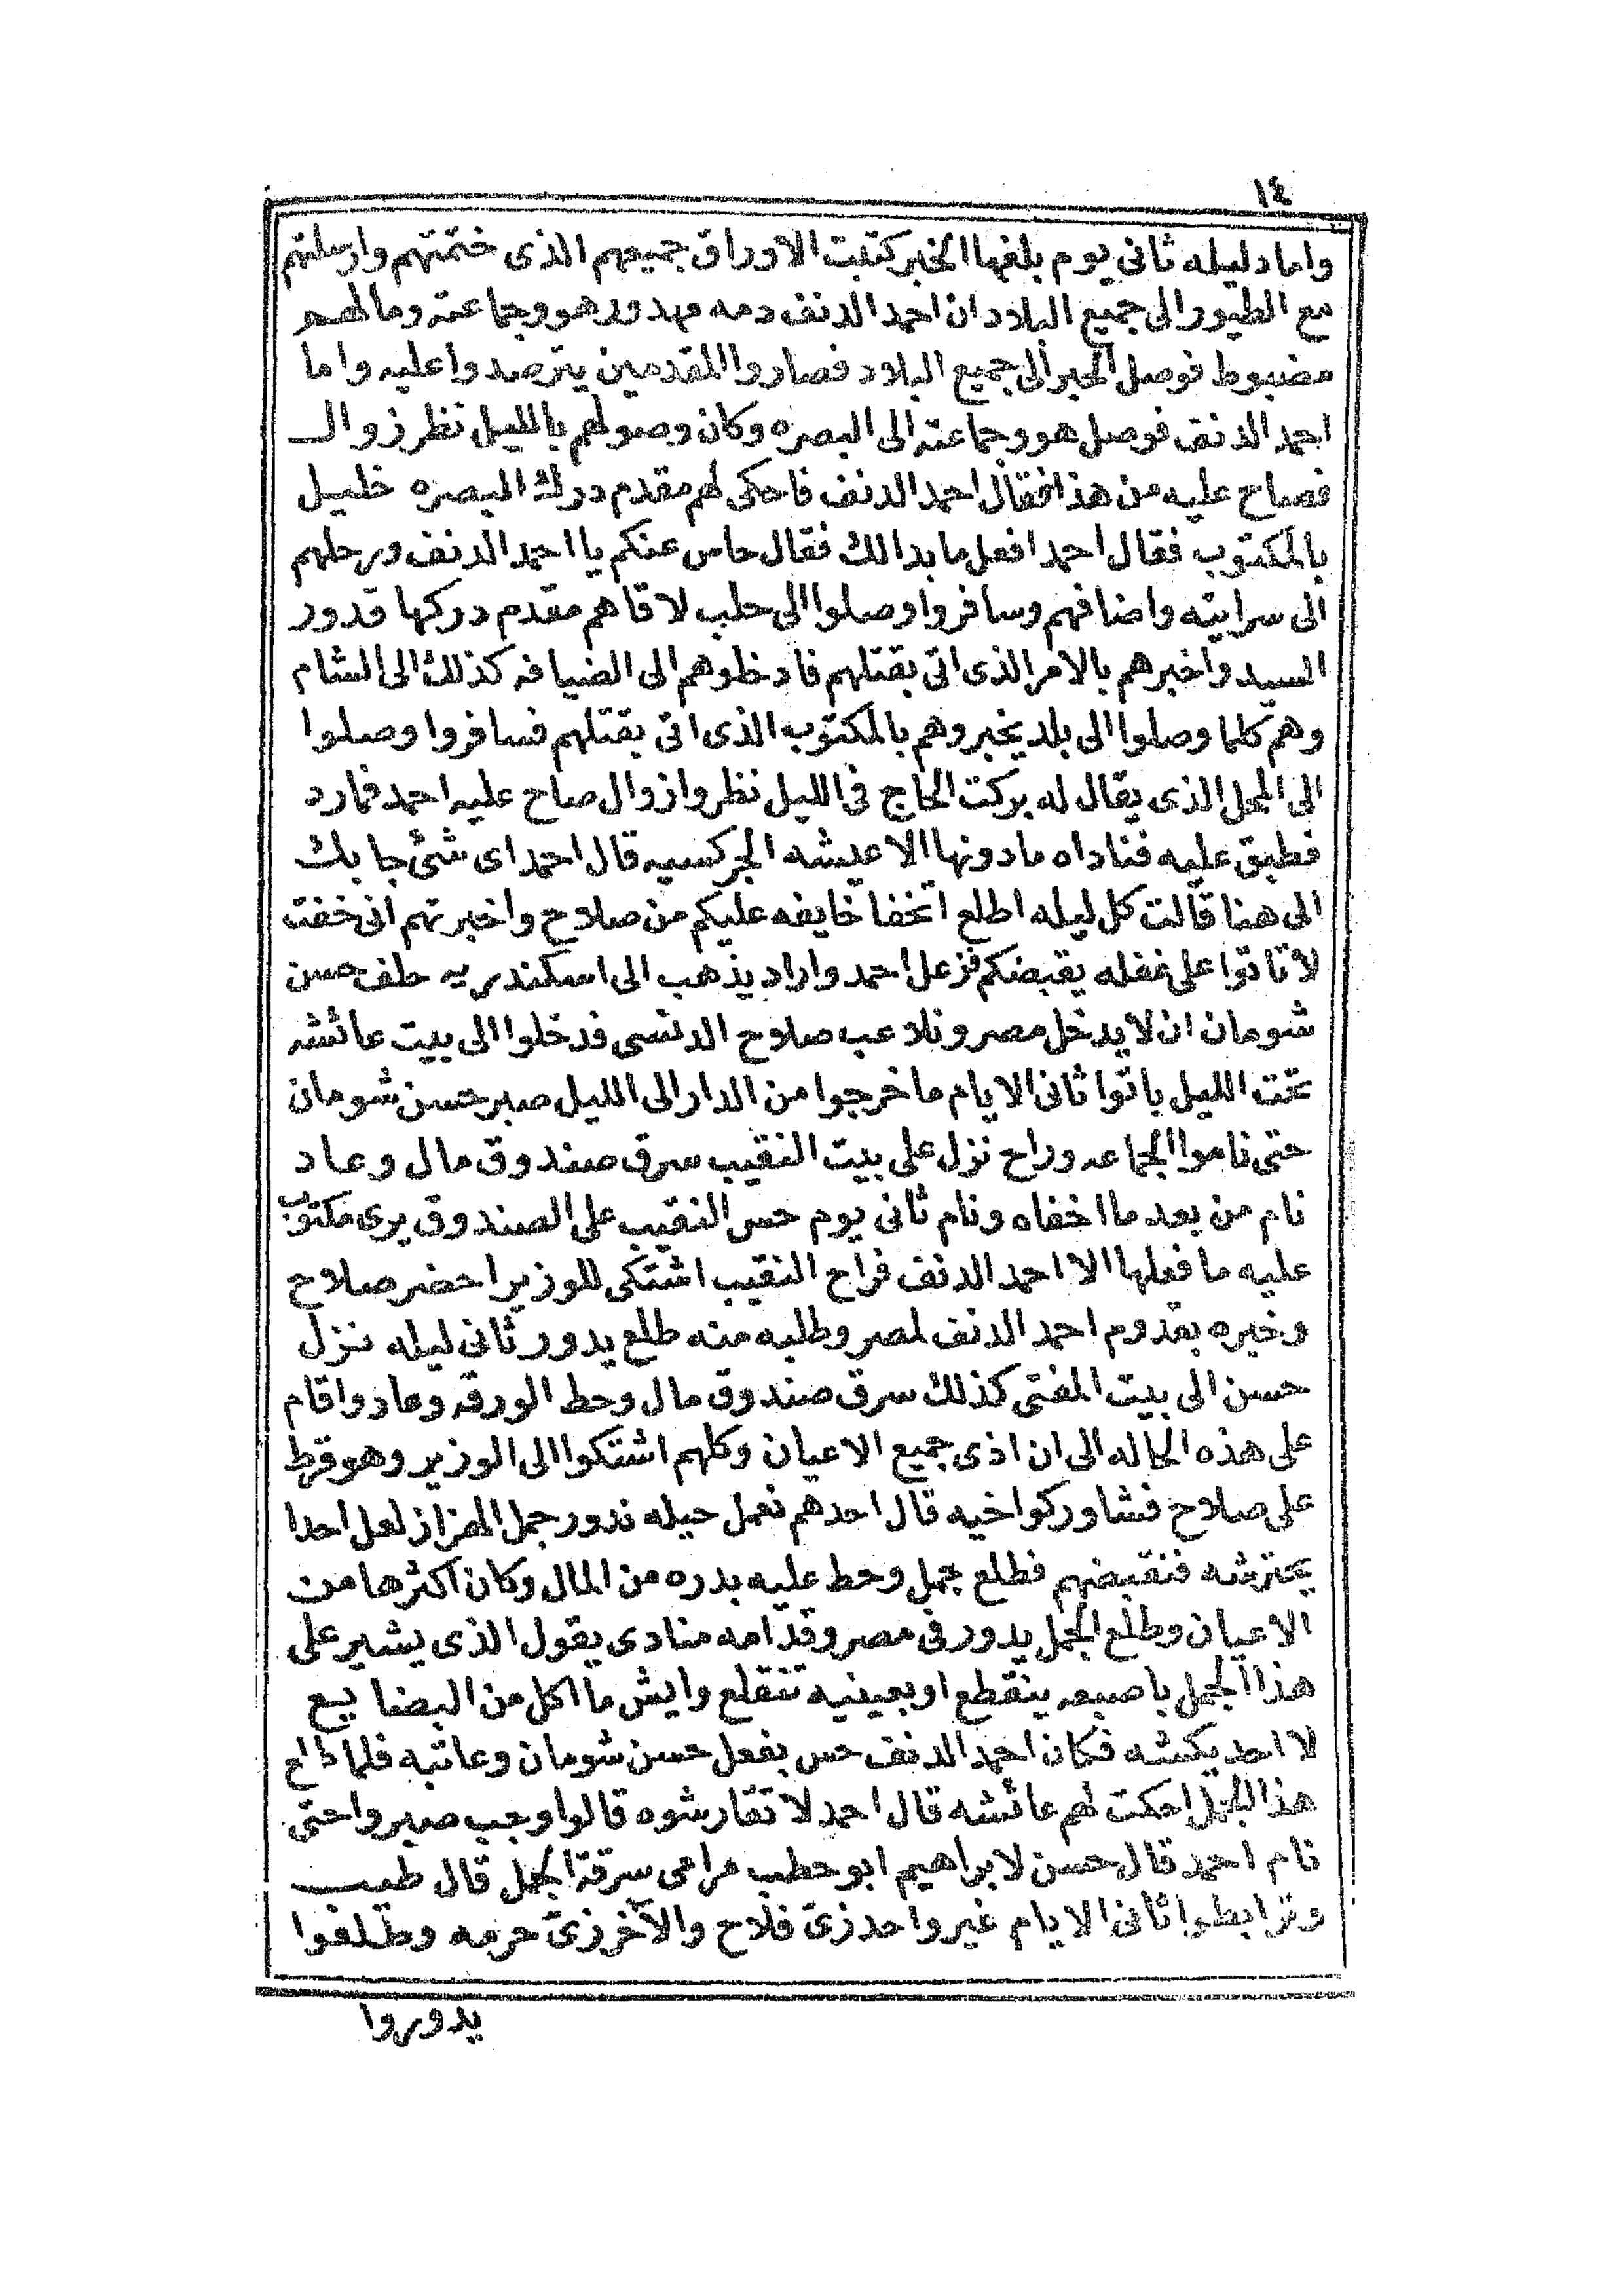 ١٤
واما دليله ثانى يوم بلغها الخبر كتبت الاوراق جميعهم الذى ختمتهم وارسلتهم
مع الطيور الى جميع البلاد ان احمد الدنف دمه مهدور هو وجماعته ومالهم
مضبوط فوصل الخبر الى جميع البلاد فصاروا المقدمين يترصدوا عليه واما
احمد الدنف فوصل هو وجماعته الى البصره وكان وصولهم بالليل نظر زوال
فصاح عليه من هذا فقال احمد الدنف فاحكى لهم مقدم درك البصره خليل
بالمكتوب فقال احمد افعل ما بدالك فقال حاس عنكم يا احمد الدنف ورحلهم
الى سرايته واضافهم وسافروا وصلوا الى حلب لاقاهم مقدم دركها قدور
السيد واخبرهم بالامر الذى اتى بقتلهم فادخلوهم الى الضيافه كذلك الى الشام
وهم كلما وصلوا الى بلد يخبروهم بالمكتوب الذى اتى بقتلهم فسافروا وصلوا
الى المحل الذى يقال له بركت الحاج فى الليل نظروا زوال صاح عليه احمد فمارد
فطبق عليه فناداه مادونها الا عيشه الجركسيه قال احمد اى شئ جابك
الى هنا قالت كل ليله اطلع اتخفا خايفه عليكم من صلاح واخبرتهم انى خفت
لا تاتوا على غفله يقبضكم فزعل احمد واراد يذهب الى اسكندريه حلف حسن
شومان ان لا يدخل مصر ونلاعب صلاح الدنسى فدخلوا الى بيت عائشه
تحت الليل باتوا ثانى الايام ما خرجوا من الدار الى الليل صبر حسن شومان
حتى ناموا الجماعه وراح نزل على بيت النقيب سرق صندوق مال وعاد
نام من بعد ما اخفاه ونام ثانى يوم حس النقيب على الصندوق يرى مكتوب
عليه ما فعلها الا احمد الدنف فراح النقيب اشتكى للوزير احضر صلاح
وخبره بقدوم احمد الدنف لمصر وطلبه منه طلع يدور ثانى ليله نزل
حسن الى بيت المفتى كذلك سرق صندوق مال وحط الورقه وعاد واقام
على هذه الحاله الى ان اذى جميع الاعيان وكلهم اشتكوا الى الوزير وهو قرط
على صلاح فشاور كواخيه قال احدهم نعمل حيله ندور جمل الهزاز لعل احدا
يحترشه فنقبضهم فطلع بجمل وحط عليه بدره من المال وكان اكثرها من
الاعيان وطلع الجمل يدور فى مصر وقدامه منادى يقول الذى يشير على
هذا الجمل باصبعه ينقطع او بعينيه تنقلع وايش ما اكل من البضايع
لا احد يكشه فكان احمد الدنف حس بفعل حسن شومان وعاتبه فلما طلع
هذا الجمل احكت لهم عائشه قال احمد لا تقارشوه قالوا وجب صبروا حتى
نام احمد قال حسن لابراهيم ابو حطب مرامى سرقة الجمل قال طيب
وترابطوا ثانى الايام غير واحد زى فلاح والآخر زى حرمه وطلعوا
يدوروا